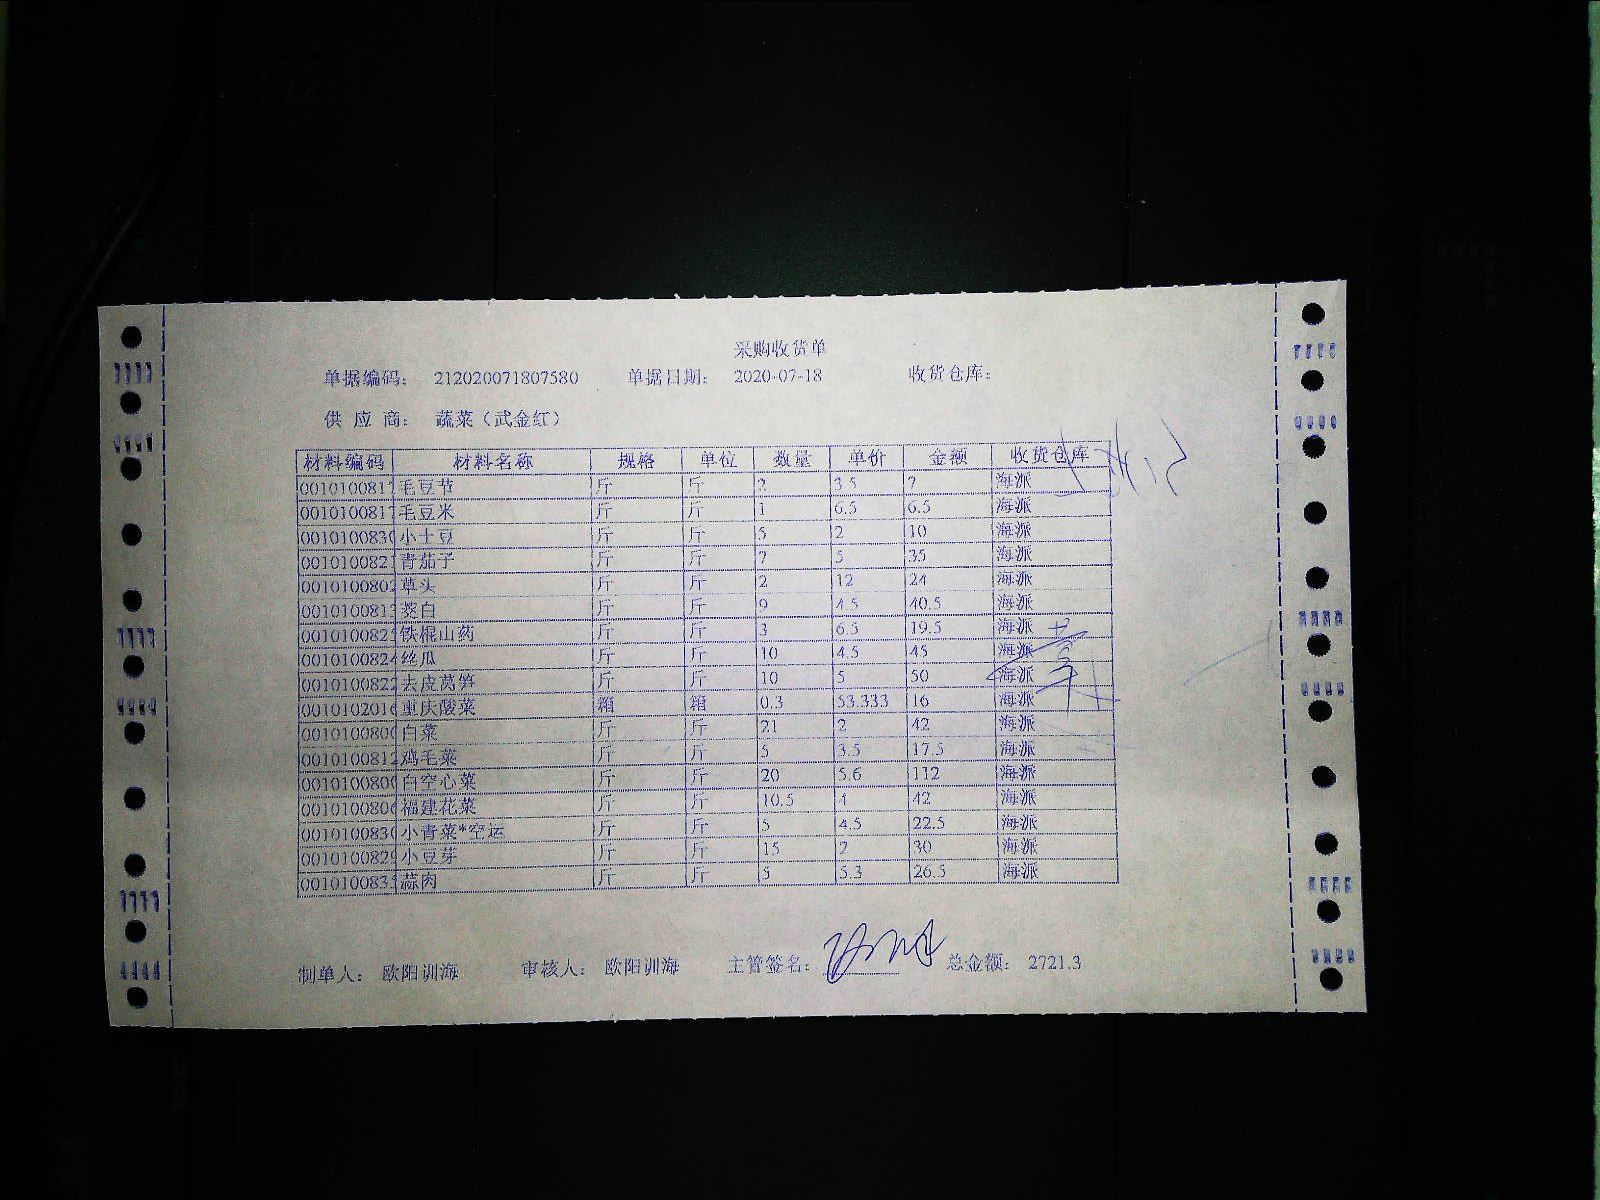 采购收货单
单据编码： 212020071807580 单据日期： 2020-07-18 收货仓库：
供 应 商： 蔬菜（武金红）
材料编码 材料名称 规格 单位 数量 单价 金额 收货仓库
0010100817 毛豆节 斤 斤 2 3.5 7 海派
0010100817 毛豆米 斤 斤 1 6.5 6.5 海派
0010100830 小土豆 斤 斤 5 2 10 海派
0010100821 青茄子 斤 斤 7 5 35 海派
0010100802 草头 斤 斤 2 12 24 海派
0010100813 茭白 斤 斤 9 4.5 40.5 海派
0010100825 铁棍山药 斤 斤 3 6.5 19.5 海派
0010100824 丝瓜 斤 斤 10 4.5 45 海派
0010100822 去皮莴笋 斤 斤 10 5 50 海派
0010102016 重庆酸菜 箱 箱 0.3 53.333 16 海派
0010100800 白菜 斤 斤 21 2 42 海派
0010100812 鸡毛菜 斤 斤 5 3.5 17.5 海派
0010100800 白空心菜 斤 斤 20 5.6 112 海派
0010100806 福建花菜 斤 斤 10.5 4 42 海派
0010100830 小青菜*空运 斤 斤 5 4.5 22.5 海派
0010100829 小豆芽 斤 斤 15 2 30 海派
0010100835 蒜肉 斤 斤 5 5.3 26.5 海派
制单人： 欧阳训海 审核人： 欧阳训海 主管签名： 总金额： 2721.3